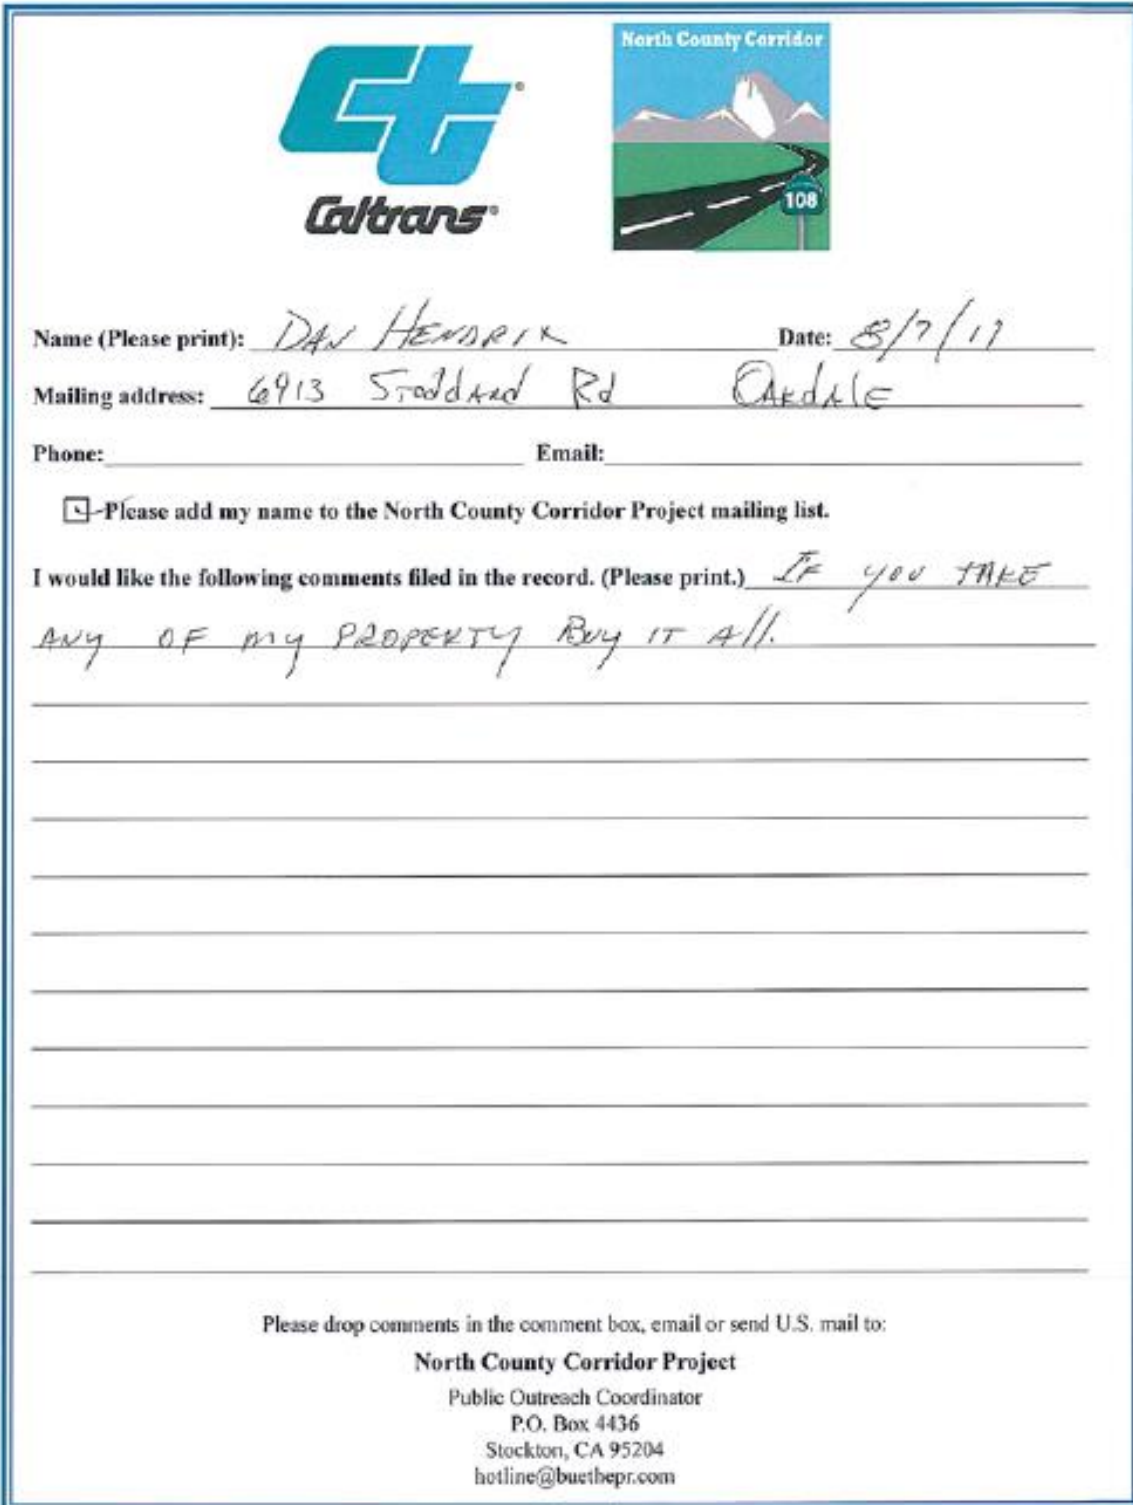 North County Corridor
Ct®
Caltrans®
108
Name (Please print): DAN HENDRIX Date: 8/7/17
Mailing address: 6913 StoddArd Rd OAkdAlE
Phone: Email:
Please add my name to the North County Corridor Project mailing list.
I would like the following comments filed in the record. (Please print.) IF you TAKE
ANy OF my PROPERTY Buy IT All.
Please drop comments in the comment box, email or send U.S. mail to:
North County Corridor Project
Public Outreach Coordinator
P.O. Box 4436
Stockton, CA 95204
hotline@buethepr.com